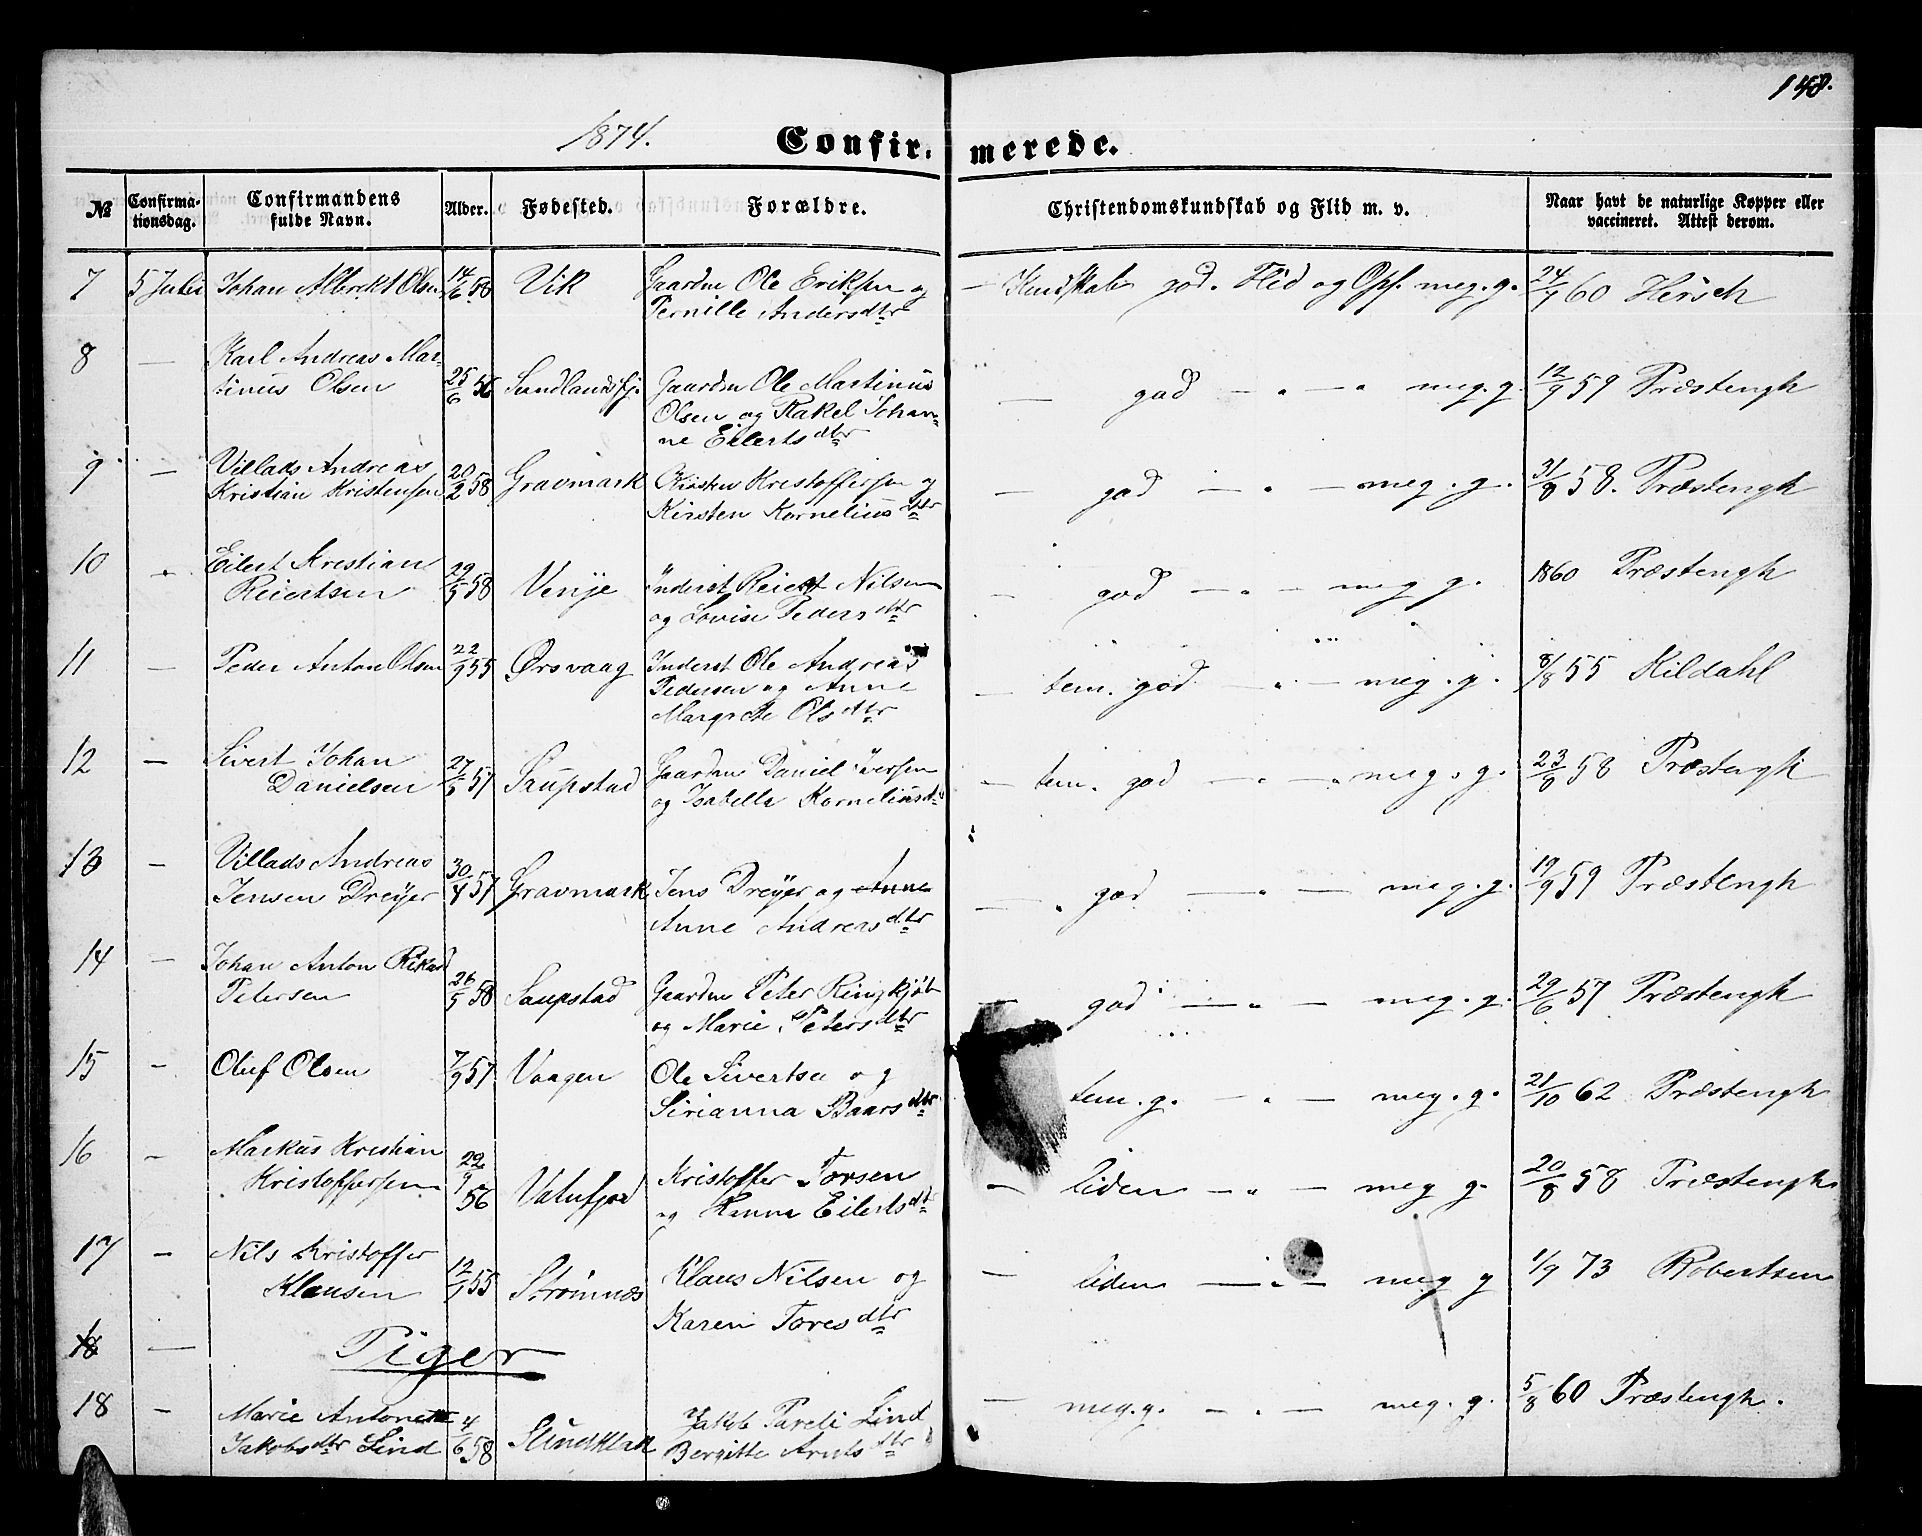 148.
1874. Confir- merede.
№ Confirma-tionsdag. Confirmandens fulde Navn. Alder. Fødested. Forældre. Christendomskundskab og Flid m. v. Naar havt de naturlige Kopper eller vaccineret. Attest derom.
7 5 Juli Johan Albrekt Olsen 14/6 58 Vik Gaardm Ole Eriksen og — Kundskab god. Flid og Opf. meg. g. 24/9 60 Hersch
Pernille Andersdtr
8 — Karl Andreas Mar-
tinus Olsen 25/6 56 Sundlandsfj. Gaardm Ole Martinus — god — " — " meg. g. 12/9 59 Præstengh
Olsen og Rakel Johan-
ne Eilertsdtr
9 — Villads Andreas
Kristian Kristensen 20/2 58 Gravmark Kristen Kristoffersen og — god — " — meg. g. 31/8 58. Præstengh
Kirsten Korneliusdtr
10 " Eilert Kristian
Reiertsen 29/5 58 Venje Inderst Reiert Nilsen — god — " — meg g. 1860 Præstengh
og Lovise Pedersdtr
11 — Peder Anton Olsen 22/9 55 Ørsvaag Inderst Ole Andreas — tem. god — " — meg. g. 8/8 55 Kildahl
Pedersen og Anne
Margrete Olsdtr
12 — Sivert Johan
Danielsen 27/5 57 Saupstad Gaardm Daniel Iversen — tem. god — " — " meg. g. 23/8 58 Præstengh
og Isabella Korneliusd
13 — Villads Andreas
Jensen Dreyer 30/4 57 Gravmark Jens Dreyer og Anne — " god — " — meg. g. 19/9 59 Præstengh
Anne Andreasdtr
14 — Johan Anton Rikard
Petersen 26/5 58 Saupstad Gaardm Peter Ringkjøb — god — " — meg. g. 29/6 57 Præstengh
og Marie Petersdtr
15 — Oluf Olsen 7/9 57 Vaagen Ole Sivertsen og tem. g. — " — meg. g. 21/10 62 Præstengh
Sirianna Baarsdtr
16 — Markus Kristian
Kristoffersen 22/9 56 Vatnfjord Kristoffer Torsen — liden — " — meg g. 20/8 58 Præstengh
og Hanna Eilertsdtr
17 — Nils Kristoffer
Klausen 12/9 55 Strømnæs Klaus Nilsen og — liden — " — meg g 1/9 73 Robertsen
Karen Toresdtr
18 — Piger
18 — Marie Antonette
Jakobsdtr Lind 4/6 58 Sundklak Jakob Lind — meg. g. — " — meg. g. 5/8 60 Præstengh.
Bergitte Arntsdtr